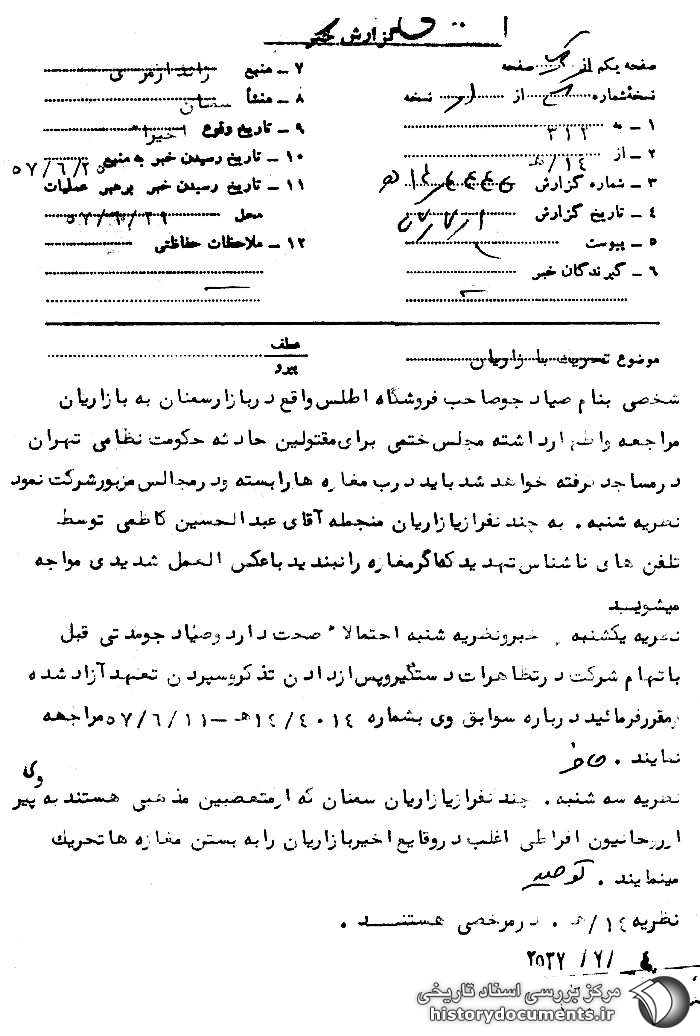 گزارش خبر
صفحه یکم از یک صفحه
نسخه شماره از نسخه
۱ ـ به ۳۱۲
۲ ـ از ۱۴/هـ
۳ ـ شماره گزارش
۴ ـ تاریخ گزارش
۵ ـ پیوست
۶ ـ گیرندگان خبر
۷ ـ منبع
۸ ـ منشأ سمنان
۹ ـ تاریخ وقوع اخیرا"
۱۰ ـ تاریخ رسیدن خبر به منبع ۵۷/۶/۲۵
۱۱ ـ تاریخ رسیدن خبر برهبر عملیات
محل ۵۷/۶/۲۹
۱۲ ـ ملاحظات حفاظتی
موضوع تحریک بازاریان
عطف
پیرو
شخصی بنام صیاد جو صاحب فروشگاه اطلس واقع در بازار سمنان به بازاریان
مراجعه و اظهار داشته مجلس ختمی برای مقتولین حادثه حکومت نظامی تهران
در مساجد گرفته خواهد شد باید درب مغازه ها را بسته و در مجالس مزبور شرکت نمود
نظریه شنبه . به چند نفر از بازاریان منجمله آقای عبدالحسین کاظمی توسط
تلفن های ناشناس تهدید که اگر مغازه را نبندید با عکس العمل شدیدی مواجه
میشوید
نظریه یکشنبه . خبر و نظریه شنبه احتمالا" صحت دارد و صیاد جو مدتی قبل
باتهام شرکت در تظاهرات دستگیر و پس از دادن تذکر و سپردن تعهد آزاد شده
مقرر فرمائید درباره سوابق وی بشماره ۱۲/۴۰۱۴هـ - ۵۷/۶/۱۱ مراجعه
نمایند .
نظریه سه شنبه . چند نفر از بازاریان سمنان که از متعصبین مذهبی هستند به پیروی
از روحانیون افراطی اغلب در وقایع اخیر بازاریان را به بستن مغازه ها تحریک
مینمایند .
نظریه ۱۴/هـ . در مرخصی هستند .
۲۵۳۷ /۷/ ۴
مرکز بررسی اسناد تاریخی
historydocuments.ir